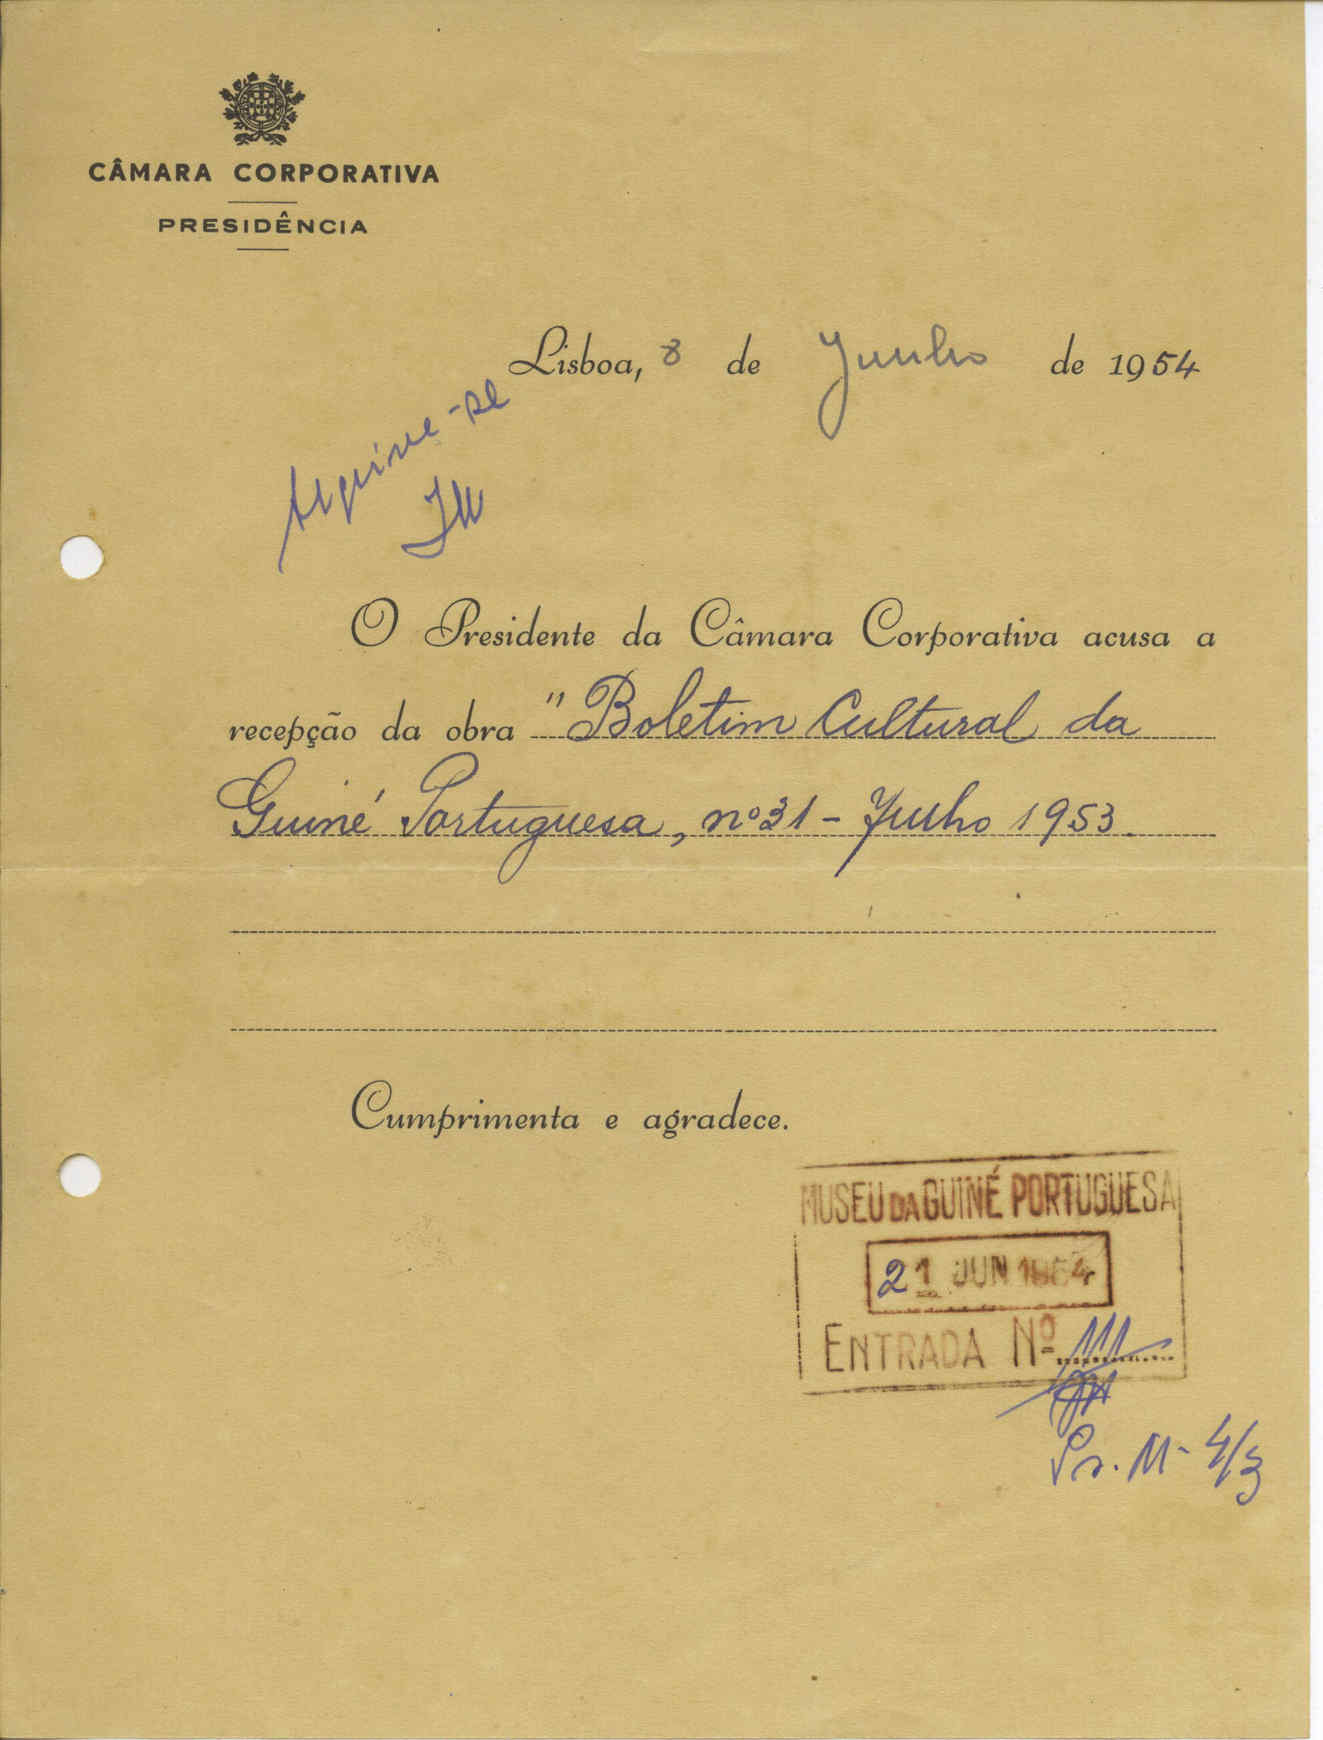 CÂMARA CORPORATIVA
PRESIDÊNCIA
Lisboa, 8 de Junho de 1954
Arquive-se
O Presidente da Câmara Corporativa acusa a
recepção da obra "Boletim Cultural da
Guiné Portuguesa, nº 31 - Julho 1953.
Cumprimenta e agradece.
MUSEU DA GUINÉ PORTUGUESA
21 JUN 1954
ENTRADA Nº
Pr. M- 4/3